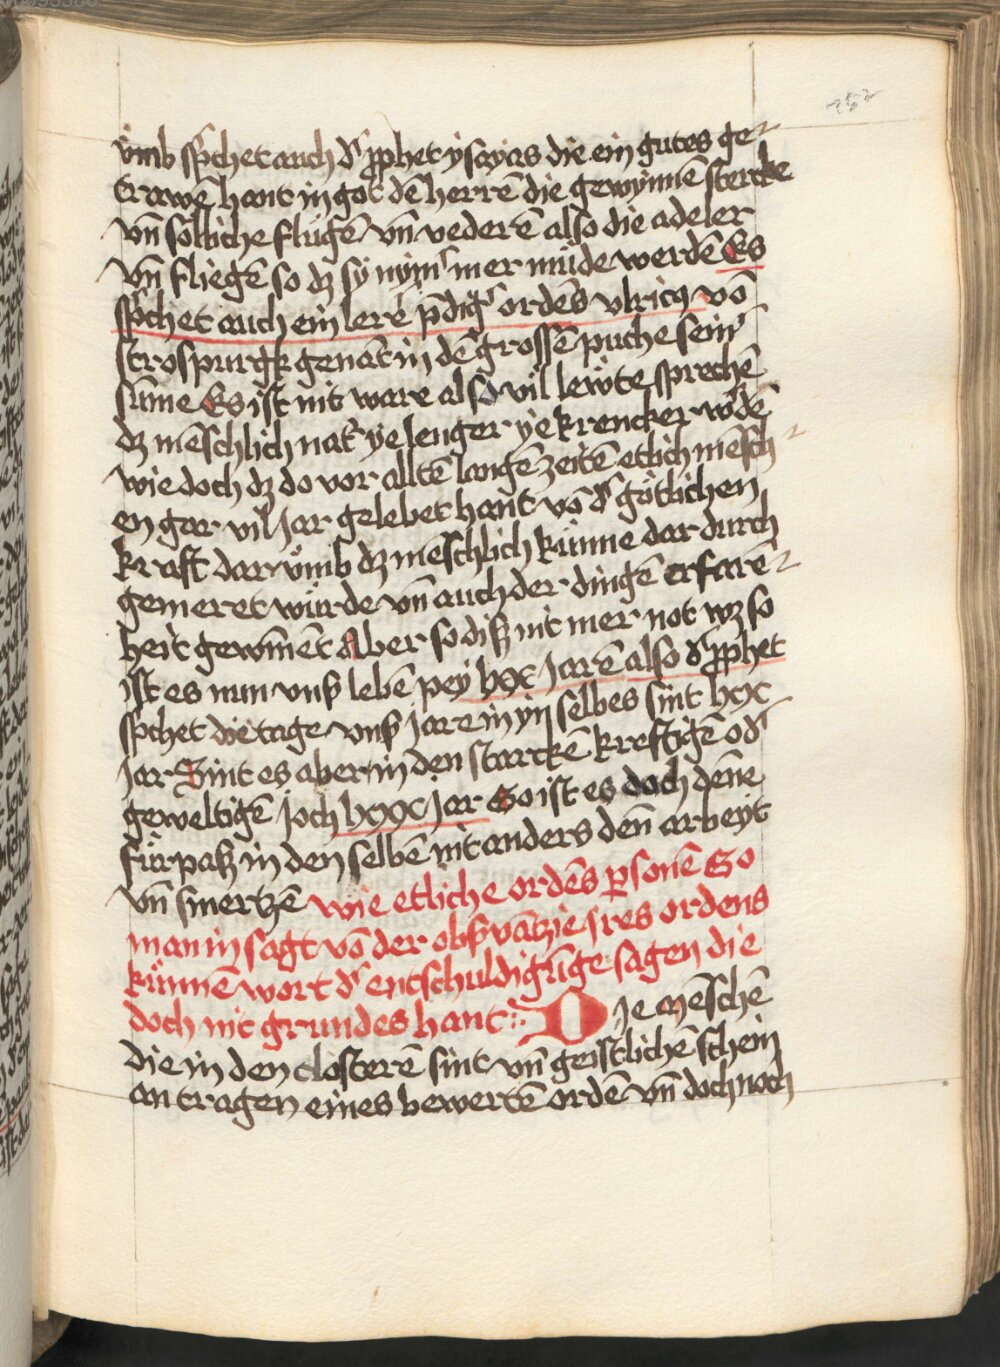 252
vmb spͤchet auch dˢ ꝓphet ysayas die ein gutes ge-
trawē hant in got dē herrē die gewynnē stercke
vn̄ sölliche flügē vn̄ vederē also die adeler
vn̄ fliegē so dz sy nymˢ mer müde werdē Es
spͤchet auch ein lerˢ pͤdigˢ ordēs vlricꝰ vō
strospurgk genāt in dē grossē puche seinˢ
sūme Es ist nit ware also vil lewte sprechē
dz mēschlich natˢ ye lenger ye krencker wˢdē
wie doch dz do vor alltē langē zeitē etlich mēsch-
en gar vil Jar gelebet hant vō dˢ götlichen
kraft dar vmb dz mēschlich künne dar durch
gemeret würde vn̄ auch der dingē erfarē-
heit gewūnēt Aber so diß nit mer not wz so
ist es nun vnß lebē pey lxx Jarē also dˢ ꝓphet
spͤchet die tage vnß Jare in yn selbes sint lxx
Jar Sint es aber in den starckē kreftigē odˢ
geweltigē Joch lxxx Jar So ist es doch dēne
fürpaß in den selbē nit anders deñ arbeyt
vn̄ smertzē wie etliche ordēs ꝑsonē So
man in sagt vō der obsˢvātzie Jres ordens
künnē wort dˢ entschuldigūge sagen die
doch nit grundes hant :~ Die mēschē
die in den clösterē sint vn̄ geistlichē schein
an tragen eines bewertē ordē vn̄ doch noch